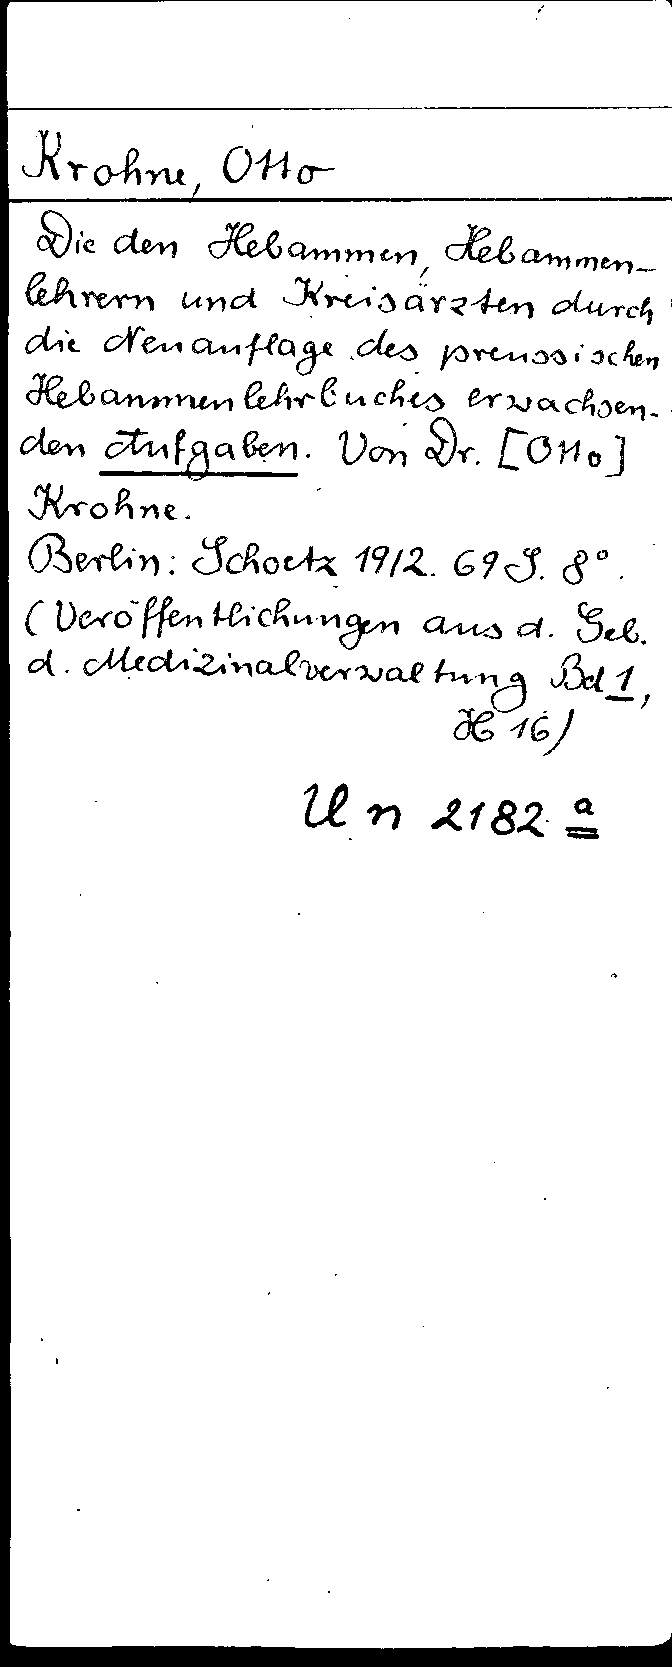 Krohne, Otto
Die den Hebammen, Hebammen-
lehrern und Kreisärzten durch
die Neuauflage des preussischen
Hebammenlehrbuches erwachsen-
den Aufgaben. Von Dr. [Otto]
Krohne.
Berlin: Schoetz 1912. 69 S. 8°.
(Veröffentlichungen aus d. Geb.
d. Medizinalverwaltung Bd 1,
H 16)
U n 2182 a